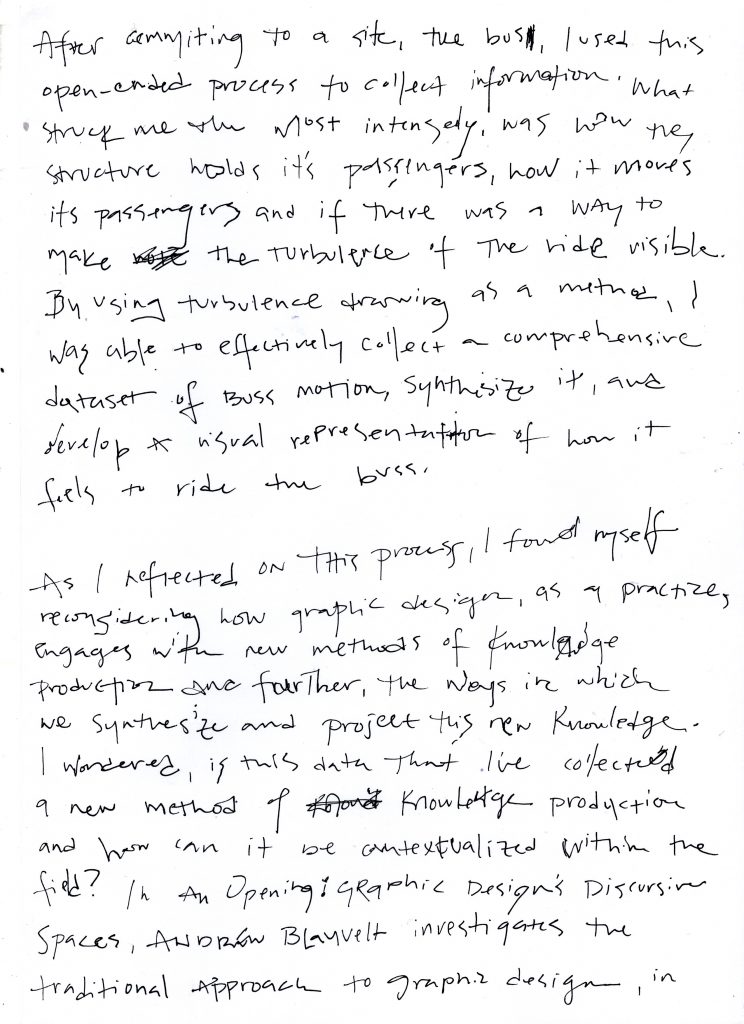 After commiting to a site, the bus, I used this
open-ended process to collect information. What
struck me the most intensely, was how the
structure holds it's passengers, how it moves
its passengers and if there was a way to
make the turbulence of the ride visible.
By using turbulence drawing as a method, I
was able to effectively collect a comprehensive
dataset of Buss motion, synthisize it, and
develop a visual representation of how it
feels to ride the buss.
As I reflected on this process, I found myself
reconsidering how graphic design, as a practice,
engages with new methods of knowledge
production and further, the ways in which
we synthesize and project this new knowledge.
I wondered, is this data that I've collected
a new method of knowledge production
and how can it be contextualized within the
field? In An Opening: Graphic Design's Discursive
Spaces, Andrew Blauvelt investigates the
traditional approach to graphic design, in